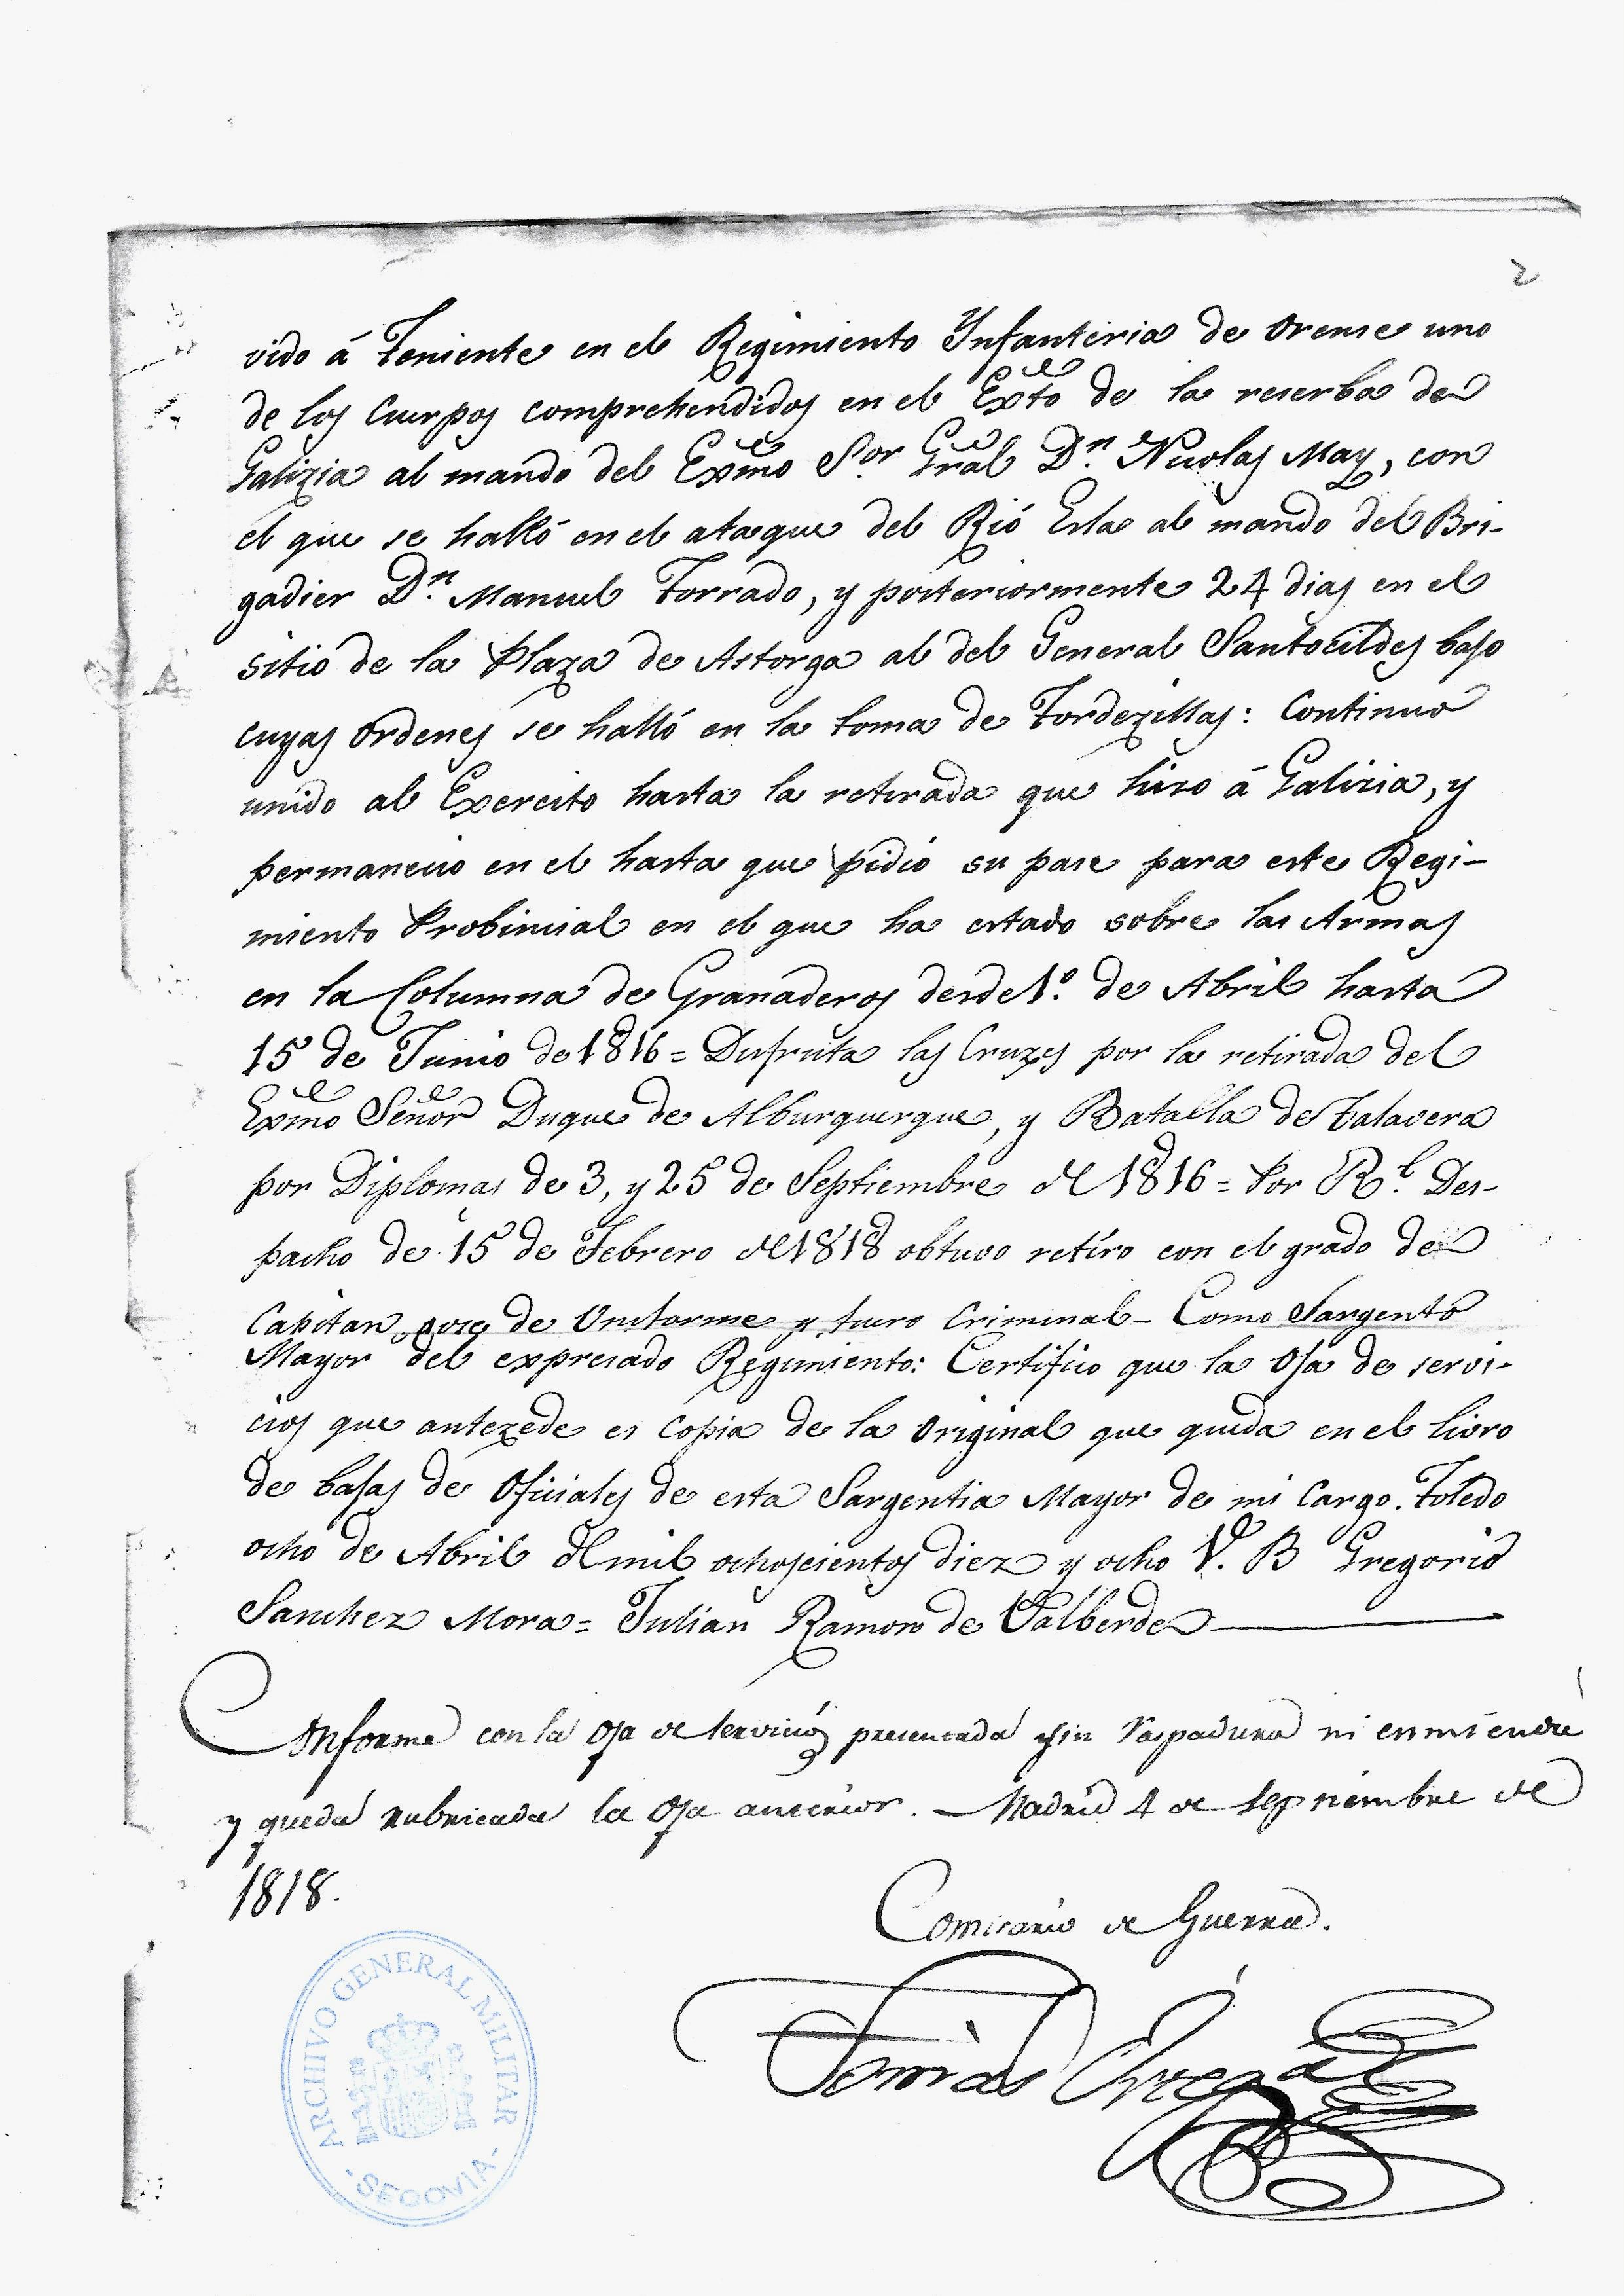 2
vido á Teniente en el Regimiento Ynfanteria de Orense uno
de los Cuerpos comprehendidos en el Exto de la reserba de
Galizia al mando del Exmo Sor Gral Dn Nicolas May, con
el que se halló en el ataque del Rió Esla al mando del Bri-
gadier Dn Manuel Torrado, y posteriormente 24 dias en el
sitio de la Plaza de Astorga al del General Santocildes bajo
cuyas Ordenes se halló en la toma de Tordezillas: Continuo
unido al Exercito hasta la retirada que hizo á Galizia, y
permanecio en el hasta que pidio su pase para este Regi-
miento Probincial en el que ha estado sobre las Armas
en la Columna de Granaderos desde 1º. de Abril hasta
15 de Junio de 1816 = Disfruta las Cruzes por la retirada del
Exmo Señor Duque de Alburquerque, y Batalla de Talavera
por Diplomas de 3, y 25 de Septiembre de 1816 = Por Rl. Des-
pacho de 15 de Febrero de 1818 obtuvo retiro con el grado de
Capitan goze de Uniforme y fuero Criminal - Como Sargento
Mayor del expresado Regimiento: Certifico que la Oja de servi-
cios que antezede es Copia de la Original que queda en el libro
de bajas de Oficiales de esta Sargentia Mayor de mi Cargo. Toledo
ocho de Abril de mil ochoscientos diez y ocho V. B Gregorio
Sanchez Mora = Julian Ramon de Valberde
Conforme con la Oja de servicios presentada y sin raspadura ni enmienda
y queda rubricada la Oja anterior. - Madrid 4 de Septiembre de
1818.
Comisario de Guerra.
Tomás
ARCHIVO GENERAL MILITAR
- SEGOVIA -